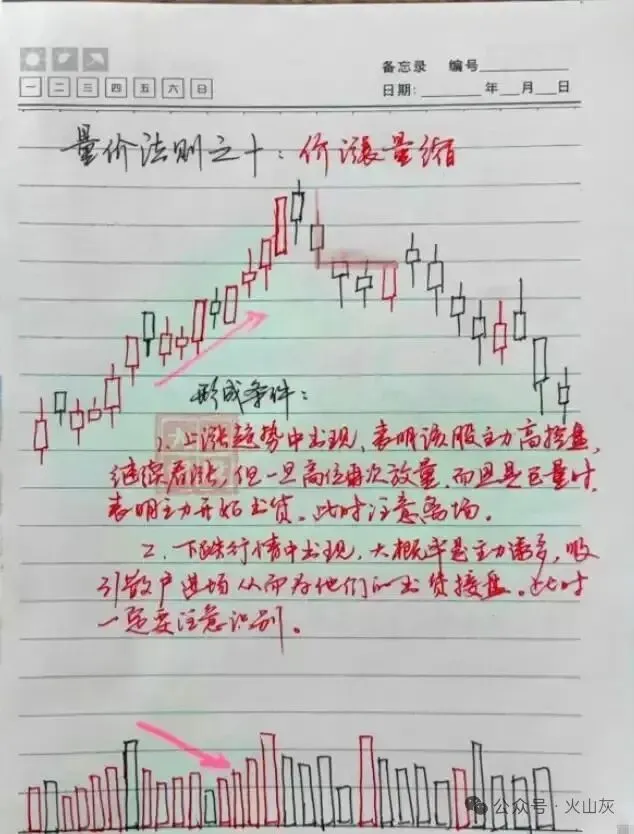 备忘录 编号
一 二 三 四 五 六 日
日期: 年 月 日
量价法则之十：价涨量缩
形成条件：
1、上涨趋势中出现，表明该股主力高控盘，
继续看涨，但一旦高位再次放量，而且是巨量时，
表明主力开始出货。此时注意离场。
2、下跌行情中出现，大概率是主力诱多，吸
引散户进场从而为他们的出货接盘。此时
一定要注意识别。
公众号·火山灰